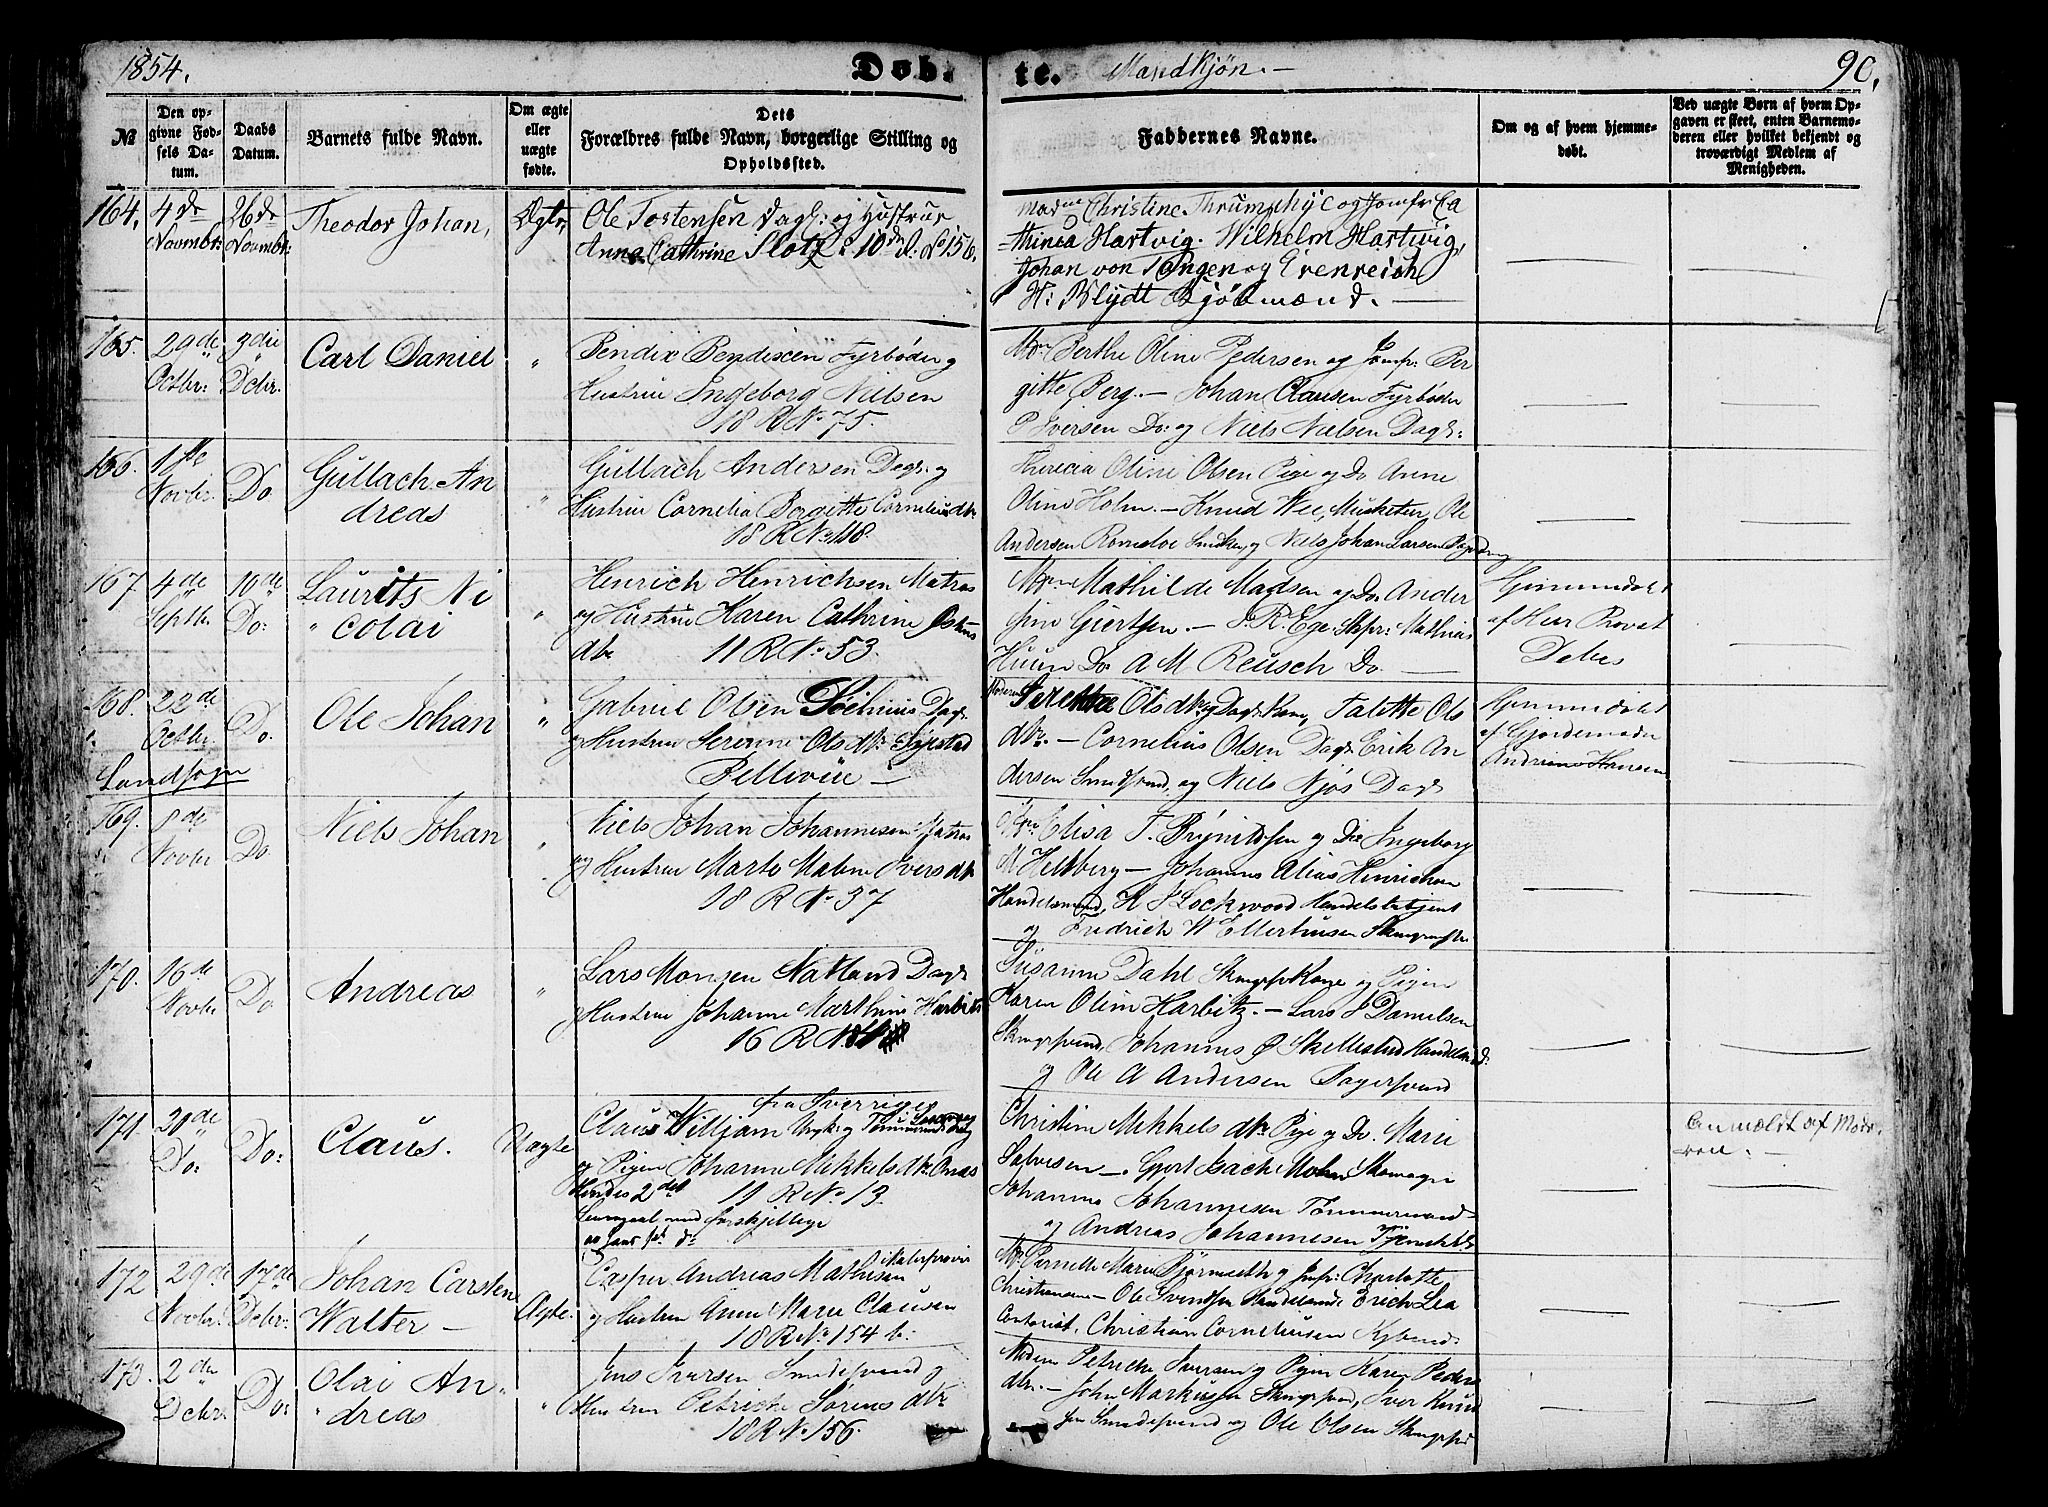 1854.
Døb-
te.
Mandkjøn.-
90.
№
Den op-
givne Fød-
sels Da-
tum.
Daabs
Datum.
Barnets fulde Navn.
Om ægte
eller
uægte
fødte.
Dets
Forældres fulde Navn, borgerlige Stilling og
Opholdssted.
Faddernes Navne.
Om og af hvem hjemme-
døbt.
Ved uægte Børn af hvem Op-
gaven er skeet, enten Barnemo-
deren eller hvilket bekjendt og
troværdigt Medlem af
Menigheden.
164. 4de 26de Theodor Johan, Ægte, Ole Tostensen Dagl: og Hustrue
Novmbr: Novmbr: Anna Cathrine Slotz: 10de R: No 156.
Madme Christine Thrumphÿ og Jomfr Ca
thinca Hartvig. Wilhelm Hartwig,
Johan von Tangen og Erenreich
H: Blydt Kjøbmænd. —
165. 29de 3die Carl Daniel " Bendix Bendixen Fyrbøder og
Octbr: Dcbr. Hustrue Ingeborg Nielsen
18 R No 75.
Mme Berthe Oline Pedersen og Jomfr: Ber
gitte Berg. - Johan Clausen Fyrbøder
P Iversen Do: og Niels Nielsen Dagl:
166. Novbr. Do Gullach An " Gullach Andersen Dagl: og
dreas Hustrue Cornelia Bergitte Corneliusdtr
18 R No 118.
Oline Olsen Pige og Do Anne
Oline Holm. - Knud Wee, Musketeer, Ole
Andersen Romsloe og Niels Johan Larsen
167 4de 10de Laurits Ni " Henrich Henrichsen Matros
Septbr Do: colai og Hustrue Karen Cathrine
dtr 11 R No 53.
Mme Mathilde Madsen og Do Ander
sine Giertsen. - S. R. Ege. Skpr: Mathias
Huun Do A M Reusch Do —
Hjemmedøbt
af Herr Provst
Debes
168. 22de Do. Ole Johan " Gabriel Olsen Dagl:
Octbr. og Hustrue Serenne Olsdtr
Landsogn Bellevüe —
Moderen Olsdtr Dagl. Kone, Talette Ols
dtr. - Cornelius Olsen Dagl. Erik An
dersen Smedsvend, og Niels Njøs Dagl:
Hjemmedøbt
af Gjordemoder
Andrine Hansen
169. 8de Do. Niels Johan " Niels Johan Johannesen Matros
Novbr og Hustrue Marte Malene Iversdtr
18 R No 37
Mme Elisa T. Brynildsen og Do Ingeborg
M. Heltberg - Johannes Alias Hinrichsen
Handelsmand, K S Lockwood Handelsbetjent
og Fredrich W Ellerhusen
170. 16de Do Andreas " Lars Monsen Natland Dagl:
Novbr og Hustrue Johanne Marthine Harbitz
16 R No
Susanne Dahl Kone og Pigen
Karen Oline Harbitz. - Lars J Danielsen
Johannes P Skillestad Handelsmd:
og Ole A Andersen Bagersvend
171. 20de Do: Claus. Uægte Claus William
Do: fra Sverrige
og Pigen Johanne Mikkelsdtr Aaras
Hendes 2det 11 R No 13.
Leiermaal med forskjellige
Christine Mikkelsdtr Pige og Do. Marie
Salvesen -. Gjert Isachs Mohn Skomager
Johannes Johannesen Tømmermand
og Andreas Johannesen
Anmældt af Mode-
ren. -
172 29de 17de Johan Carsten Ægte. Casper Andreas Mathisen
Novbr: Dcbr: Walter - og Hustrue Anne Marie Clausen
18 R No 154 b:
Mme Pernille Marie og Jmfr: Charlotte
Christiansen - Ole Svendsen Handelsmd: Erich Lea
Contorist, Christian Corneliusen
173. 2den Do: Olai An- " Jens Iversen Smedesvend og
Dcbr: dreas Hustrue Petricke Sørensdtr
18 R No 156.
Moderen Petricke Iversen og Pigen Karen Peders
dtr. - John Markusen Iver Knud
sen Smedesvend og Ole Olsen